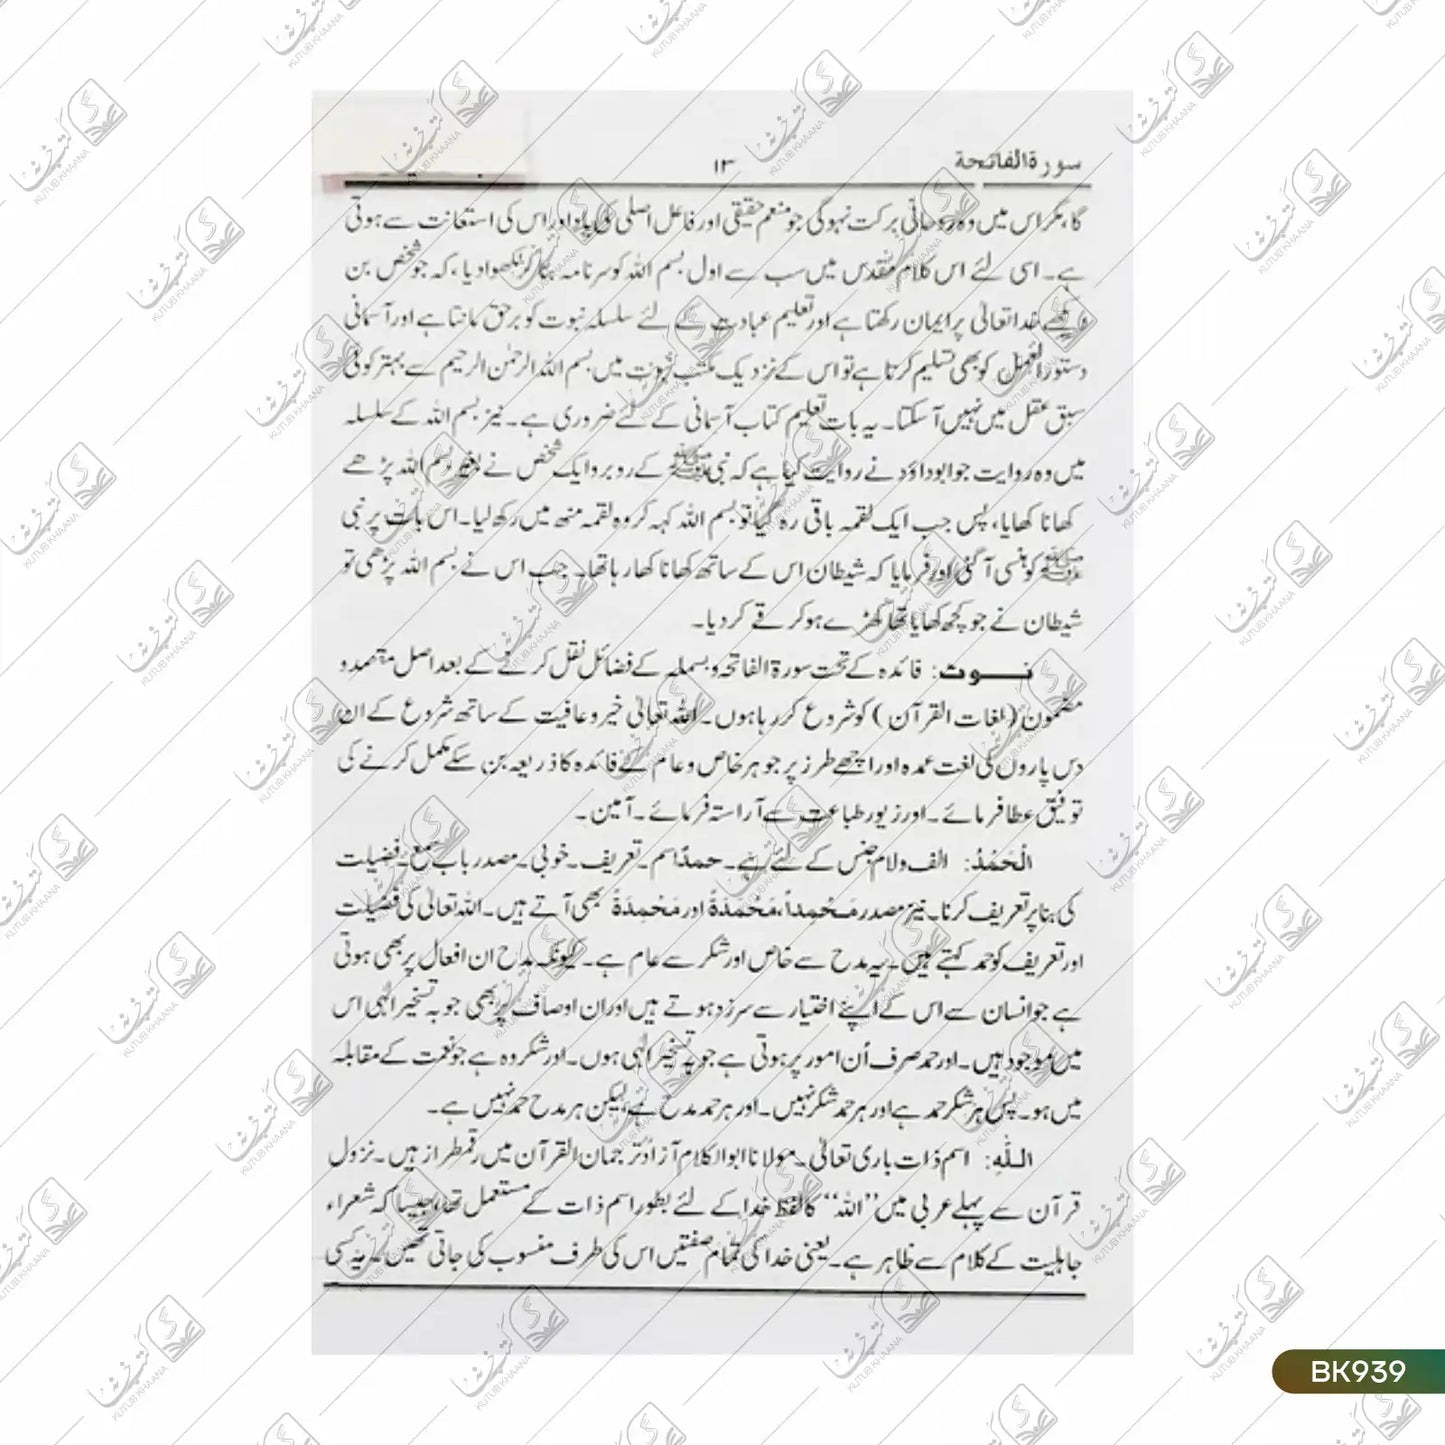 سورة الفاتحة ۱۳
گا، مگر اس میں وہ روحانی برکت نہ ہوگی جو منعم حقیقی اور فاعل اصلی کی یاد اور اس کی استعانت سے ہوتی
ہے۔ اسی لئے اس کلام مقدس میں سب سے اول بسم اللہ کو سرنامہ بنا کر لکھوا دیا، کہ جو شخص بن
دیکھے خدا تعالیٰ پر ایمان رکھتا ہے اور تعلیم عبادت کے لئے سلسلہ نبوت کو برحق مانتا ہے اور آسمانی
دستور العمل کو بھی تسلیم کرتا ہے تو اس کے نزدیک مکتب نبوت میں بسم اللہ الرحمٰن الرحیم سے بہتر کوئی
سبق عقل میں نہیں آ سکتا۔ یہ بات تعلیم کتاب آسمانی کے لئے ضروری ہے۔ نیز بسم اللہ کے سلسلہ
میں وہ روایت جو ابوداؤد نے روایت کیا ہے کہ نبی ﷺ کے روبرو ایک شخص نے بغیر بسم اللہ پڑھے
کھانا کھایا، پس جب ایک لقمہ باقی رہ گیا تو بسم اللہ کہہ کر وہ لقمہ منھ میں رکھ لیا۔ اس بات پر نبی
ﷺ کو ہنسی آ گئی اور فرمایا کہ شیطان اس کے ساتھ کھانا کھا رہا تھا۔ جب اس نے بسم اللہ پڑھی تو
شیطان نے جو کچھ کھایا تھا کھڑے ہو کر قے کر دیا۔
نوٹ: فائدہ کے تحت سورة الفاتحہ و بسملہ کے فضائل نقل کرنے کے بعد اصل مقصد و
مضمون (لغات القرآن) کو شروع کر رہا ہوں۔ اللہ تعالیٰ خیر و عافیت کے ساتھ شروع کے ان
دس پاروں کی لغت عمدہ اور اچھے طرز پر جو ہر خاص و عام کے فائدہ کا ذریعہ بن سکے مکمل کرنے کی
توفیق عطا فرمائے۔ اور زیور طباعت سے آراستہ فرمائے۔ آمین۔
الْحَمْدُ: الف ولام جنس کے لئے ہے۔ حمداً اسم۔ تعریف۔ خوبی۔ مصدر باب سمع۔ فضیلت
کی بنا پر تعریف کرنا۔ نیز مصدر مَحْمِداً، مَحْمَدَةً اور مَحْمِدَةً بھی آتے ہیں۔ اللہ تعالیٰ کی فضیلت
اور تعریف کو حمد کہتے ہیں۔ یہ مدح سے خاص اور شکر سے عام ہے۔ کیونکہ مدح ان افعال پر بھی ہوتی
ہے جو انسان سے اس کے اپنے اختیار سے سرزد ہوتے ہیں اور ان اوصاف پر بھی جو بہ تسخیر الٰہی اس
میں موجود ہیں۔ اور حمد صرف اُن امور پر ہوتی ہے جو بہ تسخیر الٰہی ہوں۔ اور شکر وہ ہے جو نعمت کے مقابلہ
میں ہو۔ پس ہر شکر حمد ہے اور ہر حمد شکر نہیں۔ اور ہر حمد مدح ہے لیکن ہر مدح حمد نہیں ہے۔
اللّٰهِ: اسم ذات باری تعالیٰ۔ مولانا ابوالکلام آزاد ترجمان القرآن میں رقمطراز ہیں۔ نزول
قرآن سے پہلے عربی میں ”اللہ“ کا لفظ خدا کے لئے بطور اسم ذات کے مستعمل تھا، جیسا کہ شعراء
جاہلیت کے کلام سے ظاہر ہے۔ یعنی خدا کی تمام صفتیں اس کی طرف منسوب کی جاتی تھیں۔ یہ کسی
BK939